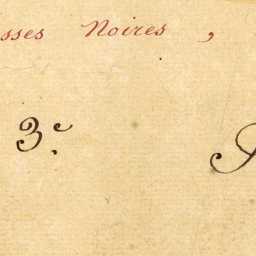 sses Noires,
3e.